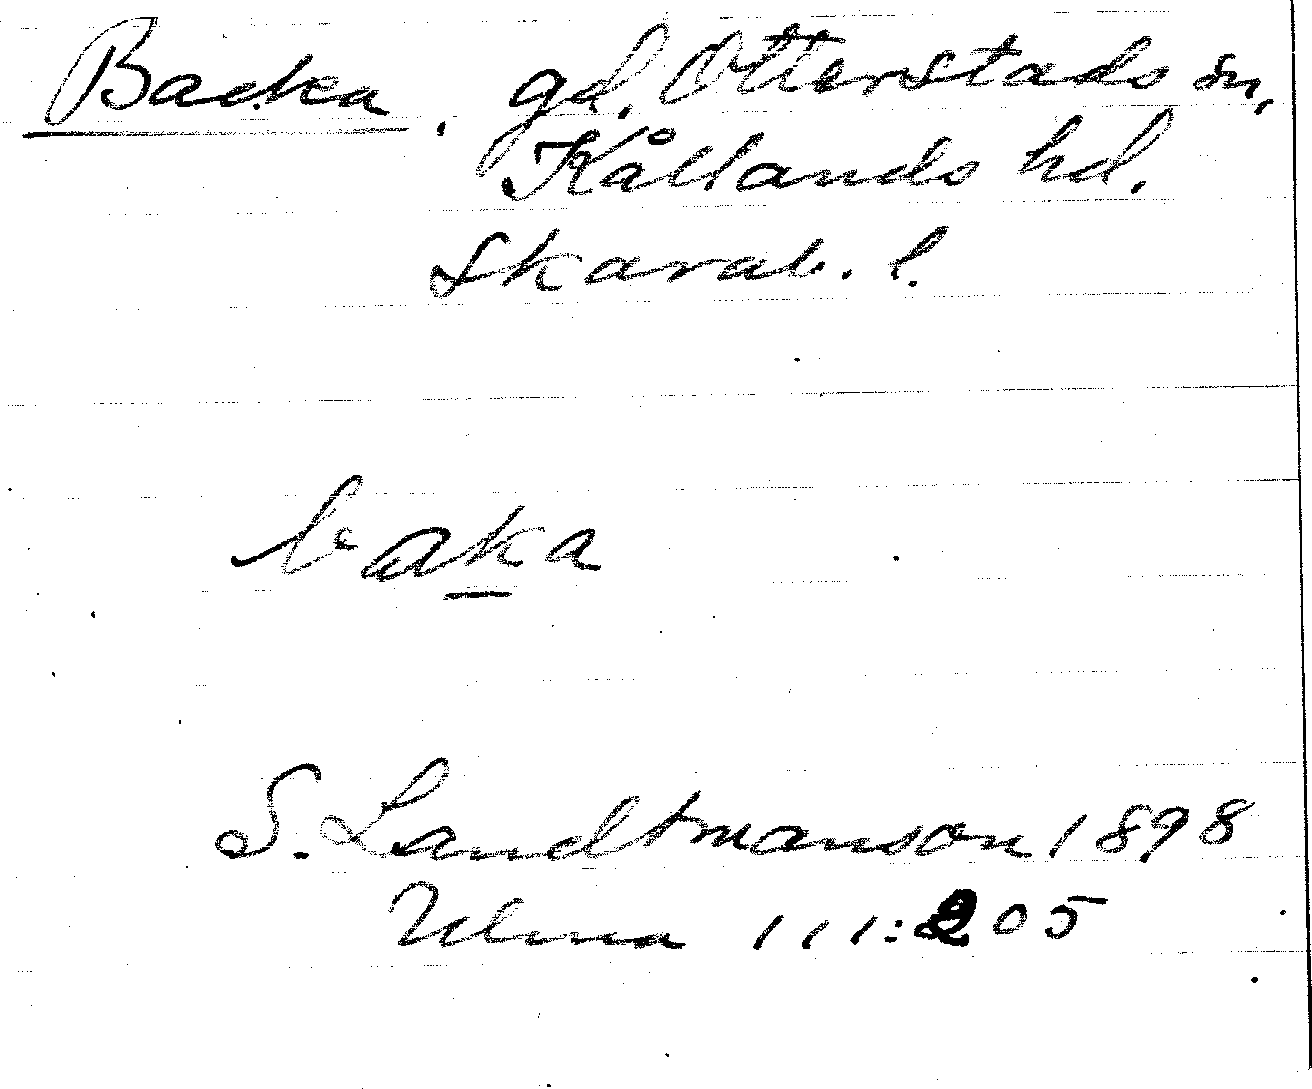 Backa, gd. Otterstads sn,
Kållands hd.
Skarab. l.
baka
S. Landtmanson 1898
Ulma 111:205